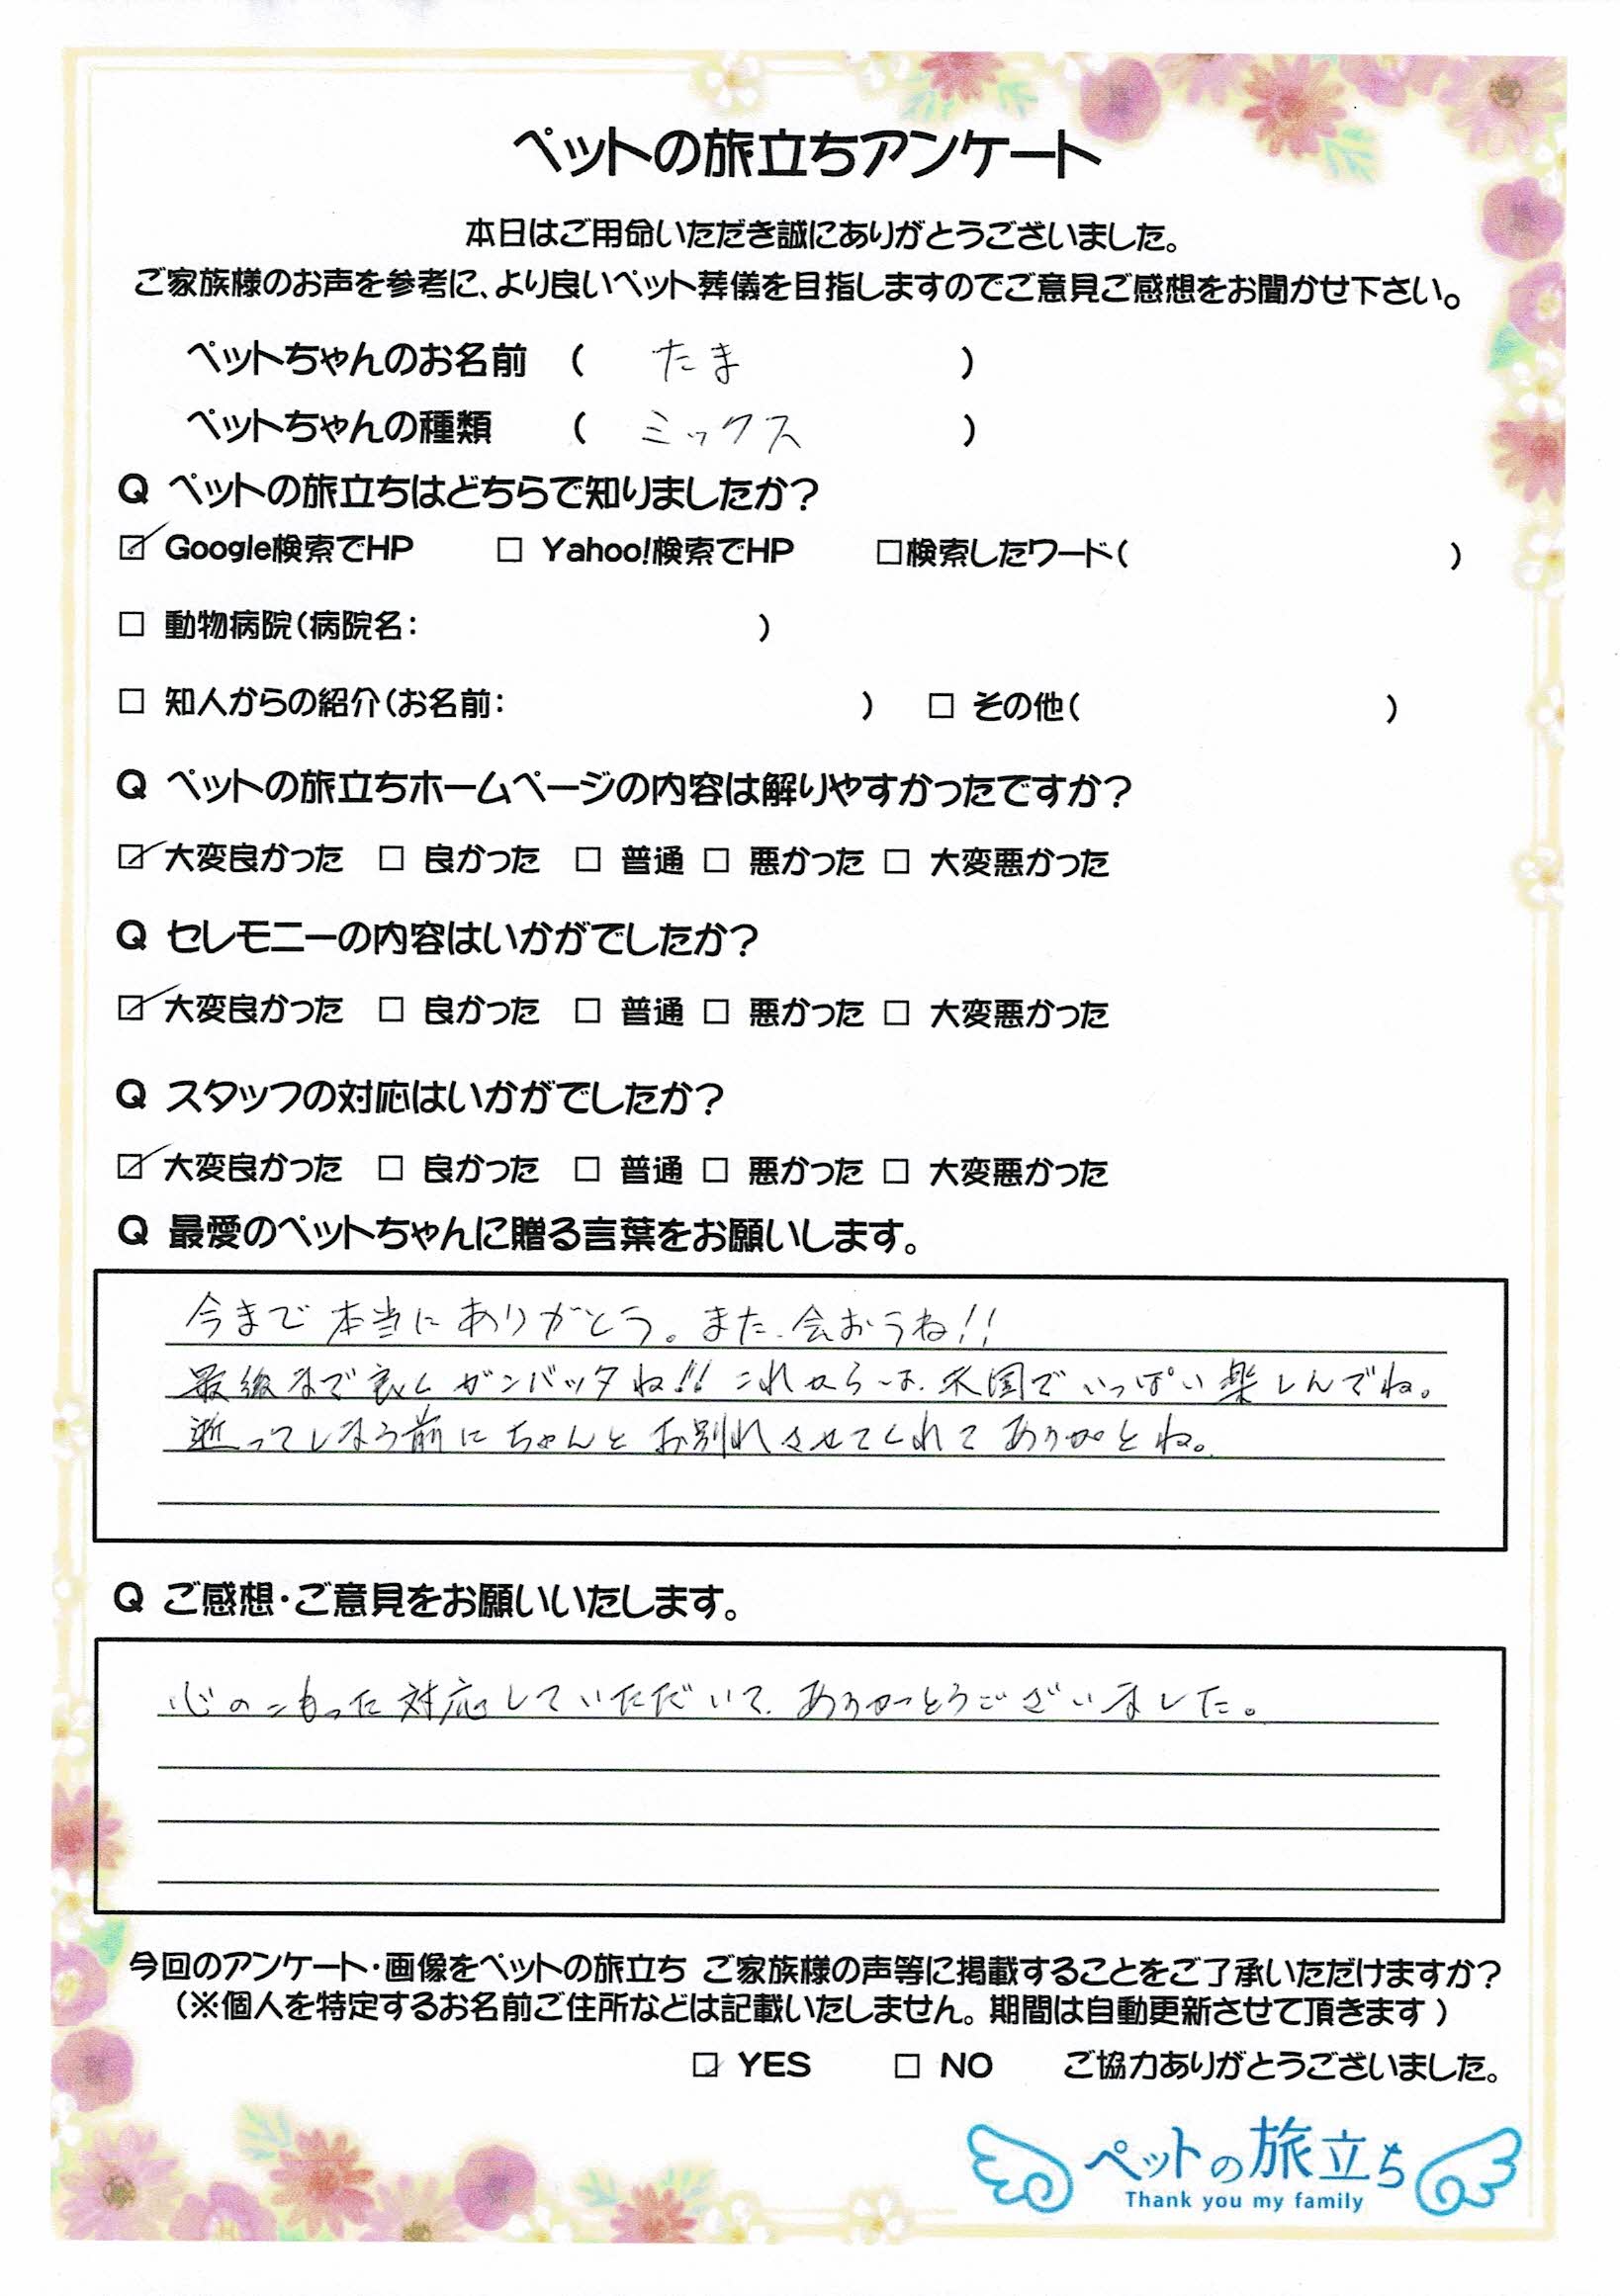 ペットの旅立ちアンケート
本日はご用命いただき誠にありがとうございました。
ご家族様のお声を参考に、より良いペット葬儀を目指しますのでご意見ご感想をお聞かせ下さい。
ペットちゃんのお名前 ( たま )
ペットちゃんの種類 ( ミックス )
Q ペットの旅立ちはどちらで知りましたか?
☑ Google検索でHP □ Yahoo!検索でHP □検索したワード( )
□ 動物病院(病院名: )
□ 知人からの紹介(お名前: ) □ その他( )
Q ペットの旅立ちホームページの内容は解りやすかったですか?
☑ 大変良かった □ 良かった □ 普通 □ 悪かった □ 大変悪かった
Q セレモニーの内容はいかがでしたか?
☑ 大変良かった □ 良かった □ 普通 □ 悪かった □ 大変悪かった
Q スタッフの対応はいかがでしたか?
☑ 大変良かった □ 良かった □ 普通 □ 悪かった □ 大変悪かった
Q 最愛のペットちゃんに贈る言葉をお願いします。
今まで本当にありがとう。また、会おうね!!
最後まで良くガンバッタね!! これからは、天国でいっぱい楽しんでね。
逝ってしまう前にちゃんとお別れさせてくれてありがとね。
Q ご感想・ご意見をお願いいたします。
心のこもった対応していただいて、ありがとうございました。
今回のアンケート・画像をペットの旅立ち ご家族様の声等に掲載することをご了承いただけますか?
(※個人を特定するお名前ご住所などは記載いたしません。期間は自動更新させて頂きます)
☑ YES □ NO ご協力ありがとうございました。
ペットの旅立ち
Thank you my family